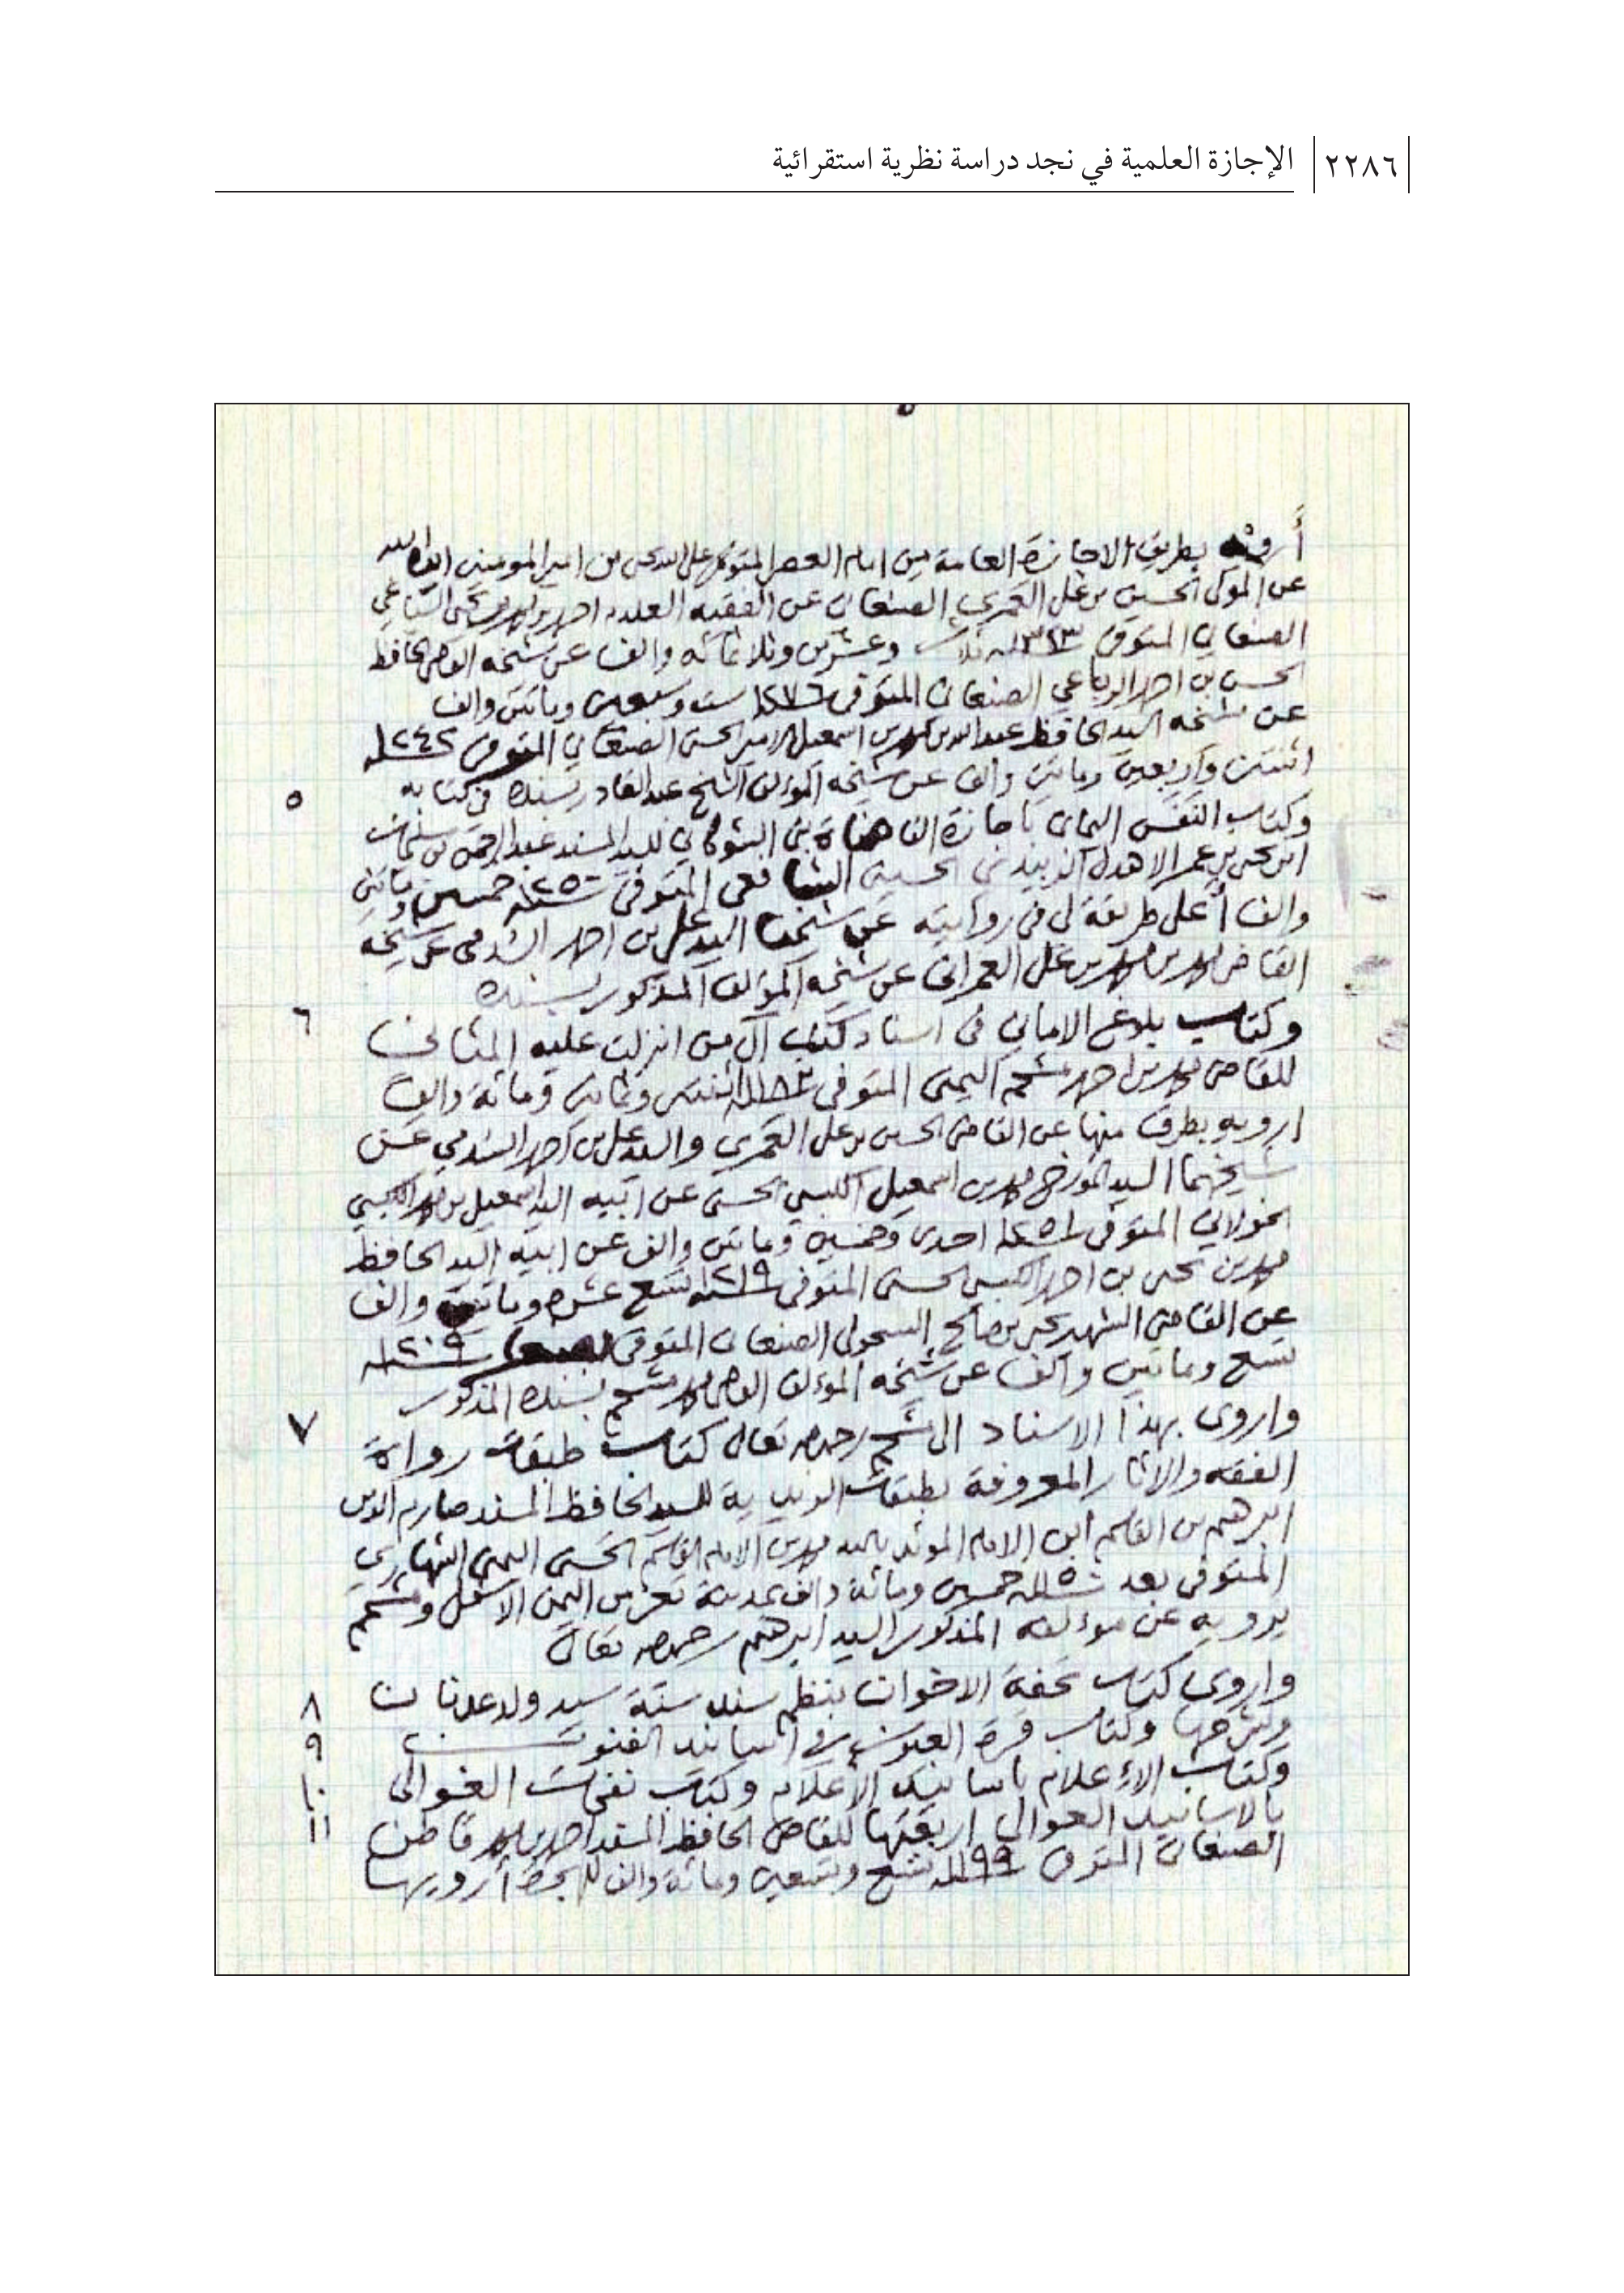 ٢٢٨٦ الإجازة العلمية في نجد دراسة نظرية استقرائية
أرويه بطريق الاجازة العامة من امام العصر المتوكل على الله يحيى بن امير المومنين ايده الله
عن المولى الحسين بن علي العمري الصنعاني عن الفقيه العلامة احمد بن محمد بن يحيى السياغي
الصنعاني المتوفى سنة ١٣٢٣ ثلاث وعشرين وثلاثمائه والف عن شيخه القاضي الحافظ
الحسن بن احمد الرباعي الصنعاني المتوفى ١٢٧٦ ست وسبعين وماتين والف
عن شيخه السيد الحافظ عبد الله بن محمد بن اسمعيل الامير الحسني الصنعاني المتوفى سنة ١٢٤٢
اثنتين واربعين وماتين والف عن شيخه المؤلف الشيخ عبد القادر بسنده في كتابه
٥ وكتاب النفس اليماني باجازة القضاة بني الشوكاني للسيد المسند عبد الرحمن بن سليمان
ابن يحيى بن عمر الاهدل الزبيدي الحسيني الشافعي المتوفى سنة ١٢٥٠ خمسين وماتين
والف أعلى طريقة لي في روايته عن شيخنا السيد علي بن احمد السدمي عن شيخه
القاضي محمد بن محمد بن علي العمراني عن شيخه المؤلف المذكور بسنده
٦ وكتاب بلوغ الاماني في اسناد كتب آل من انزلت عليه المثاني
للقاضي محمد بن احمد مشحم اليمني المتوفى سنة ١١٨٢ اثنتين وثمانين ومائة والف
ارويه بطرق منها عن القاضي الحسين بن علي العمري والسيد علي بن احمد السدمي عن
شيخهما السيد المورخ محمد بن اسمعيل الكبسي الحسني عن ابيه السيد اسمعيل بن محمد الكبسي
الخولاني المتوفى سنة ١٢٥١ احدى وخمسين وماتين والف عن ابيه السيد الحافظ
محمد بن يحيى بن احمد الكبسي الحسني المتوفى سنة ١٢١٩ تسع عشرة وماتين والف
عن القاضي الشهيد يحيى بن صالح السحولي الصنعاني المتوفى سنة ١٢٠٩
تسع وماتين والف عن شيخه المؤلف القاضي محمد مشحم بسنده المذكور
٧ واروى بهذا الاسناد الى مشحم رحمه الله تعالى كتاب طبقات رواة
الفقه والاثار المعروفة بطبقات الزيدية للسيد الحافظ المسند صارم الدين
ابرهيم بن القاسم ابن الامام المؤيد بالله محمد بن الامام القاسم الحسني اليمني الشهاري
المتوفى بعد سنة ١١٥٠ خمسين ومائة والف بمدينة تعز من اليمن الاسفل ومشحم
يرويه عن مؤلفه المذكور السيد ابرهيم رحمه الله تعالى
٨ واروى كتاب تحفة الاخوان بنظم سند سنة سيد ولد عدنان
٩ وشرحها وكتاب قرة العيون في اسانيد الفنون
١٠ وكتاب الإعلام باسانيد الأعلام وكتاب نفحات الغوالي
١١ بالاسانيد العوالي اربعتها للقاضي الحافظ المسند احمد بن محمد قاطن
الصنعاني المتوفى سنة ١١٩٩ تسع وتسعين ومائة والف للهجرة أرويها